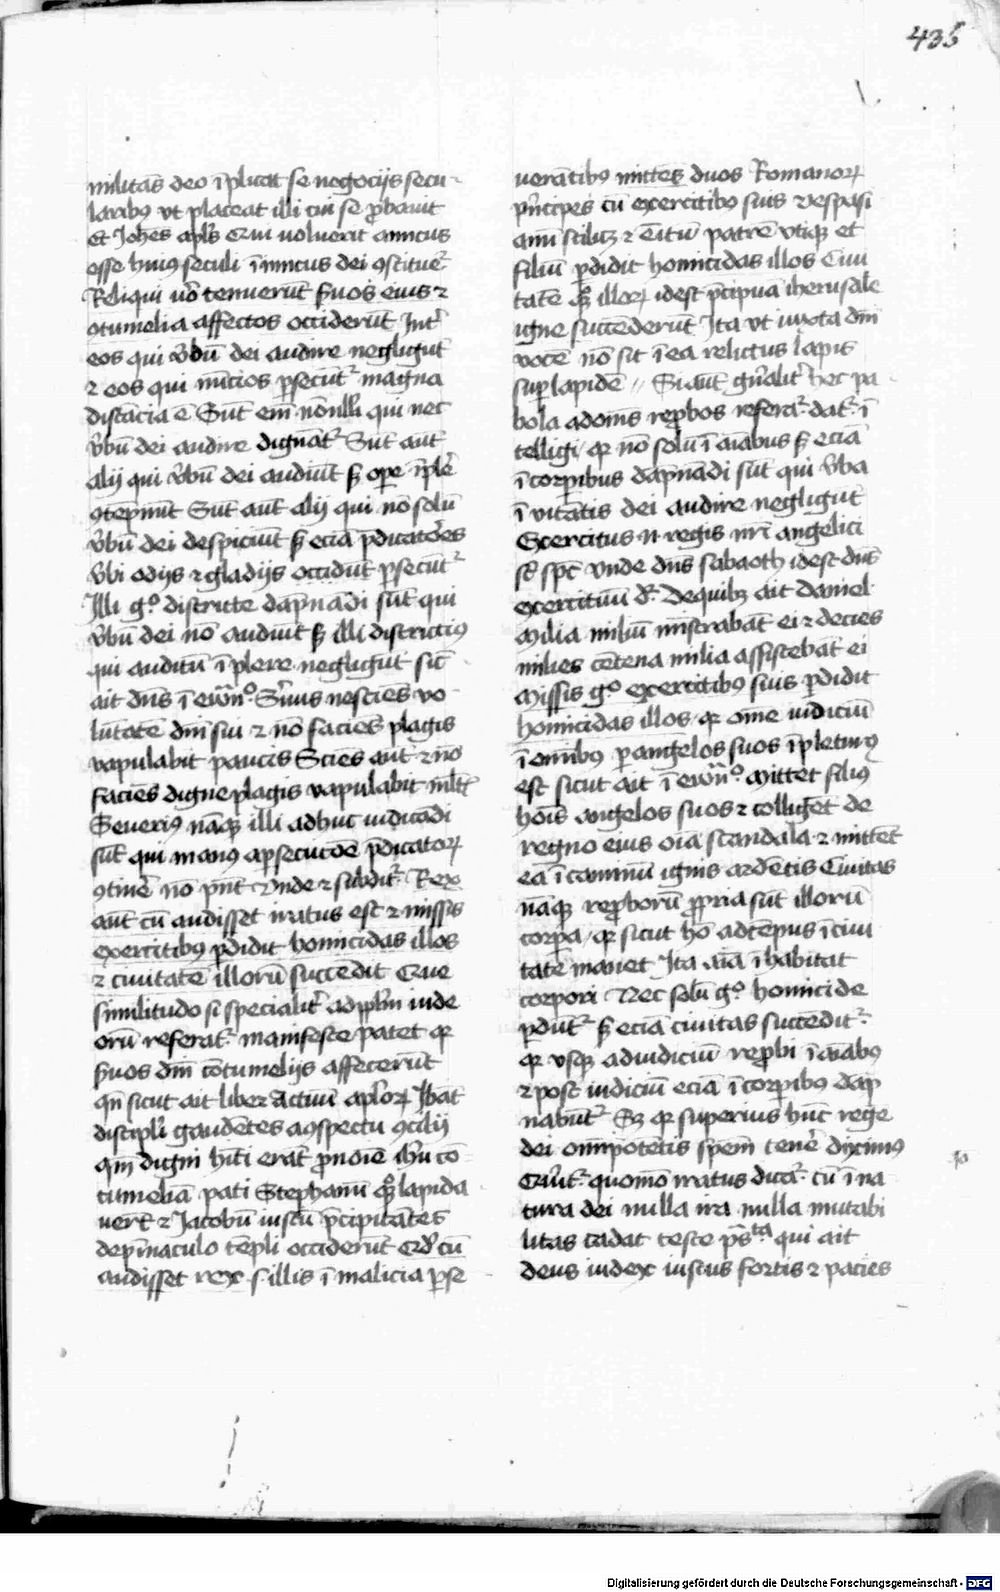 435
militās deo īplicat se negocijs secu-
laribꝫ vt placeat illi cui se ꝓbauit
Et Johēs apl's Qui uoluerit amicus
esse huiꝰ seculi īimicus dei ꝯstituet͛
Reliqui uo͛ tenuerūt ẜuos eius ⁊
ꝯtumelia affectos occiderūt Int͛
eos qui v͛bū dei audire negligūt
⁊ eos qui nūcios ꝑsecūt᷑ magna
distācia ē Sūt em̄ nōnulli qui nec
v͛bū dei audire dignāt᷑ Sūt aūt
alij qui v͛bū dei audiūt ẜ oꝑe īple͛
ꝯtēpnūt Sūt aūt alij qui nō solū
v͛bū dei despiciūt ẜ eciā p̄dicatōes
v͛bi odijs ⁊ gladijs occidūt ꝑsecūt᷑
Illi gͦ districte dāpnādi sūt qui
v͛bū dei nō audiūt ẜ illi districtiꝰ
qui auditū īplere negligūt sic̄
ait dn̄s ī ewn̄ͦ ẜuus nesciēs vo-
lūtatē dn̄i sui ⁊ nō faciēs plagis
vapulabit paucis Sciēs aūt ⁊ nō
faciēs digne plagis vapulabit ml̄t'
Seueriꝰ nāqꝫ illi adhuc iudicādi
sūt qui manꝰ a ꝑsecucōe p̄dicatoꝝ
ꝯtine͛ nō pn̄t Vnde ⁊ subdit᷑ Rex
aūt cū audisset iratus est ⁊ missis
exercitibꝫ ꝑdidit homicidas illos
⁊ ciuitatē illorū succēdit Que
similitudo si specialit͛ ad ppl̄m iude
orū referat᷑ manifeste patet qꝛ
ẜuos dn̄i cōtumelijs affecerūt
qn̄ sicut ait liber Actuū apl'oꝝ Ibāt
discipl'i gaudētes a ꝯspectu ꝯcilij
qm̄ digni h'iti erāt ꝓ noīe ihū cō
tumeliā pati Stephanū qꝫ lapida
uerūt ⁊ Jacobū iustū p̄cipitātes
de pīnaculo tēpli occiderūt Qd' cū
audisset rex .s. illis ī malicia ꝑse
uerātibꝫ mittēs duos Romanoꝝ
prīcipes cū exercitibꝫ suis vespasi
anū scilicꝫ ⁊ Titū patrē vtiqꝫ et
filiū ꝑdidit homicidas illos Ciui
tatē qꝫ illoꝝ idest p̄cipua iherusalē
igne succēderūt Ita vt iuxta dn̄i
vocē nō sit ī ea relictus lapis
suꝑ lapidē // Si aūt gn̄alit͛ hec pa
bola ad om̄s rep̱bos referat᷑ dat᷑ ī
telligi / qꝛ nō solū ī aīabus ẜ eciā
ī corꝑibus dāpnādi sūt qui v͛ba
ī uitātis dei audire negligūt
Exercitus n̄ regis nr̄i angelici
sūt spc̄ vnde dn̄s sabaoth idest dn̄s
exercituū dr̄ De quibꝫ ait daniel
Milia miliū mīstrabāt ei ⁊ decies
milies cētena milia assistebāt ei
Missis gͦ exercitibꝫ suis ꝑdidit
homicidas illos / qꝛ om̄e iudiciū
ī oīnibꝫ ꝑ angelos suos īpleturꝰ
est sicut ait ī ewn̄ͦ Mittet filiꝰ
hoīs angelos suos ⁊ colligēt de
regno eius oīa scandala ⁊ mittēt
ea ī caminū ignis ardētis Ciuitas
nāqꝫ reꝓborū ꝓpria sūt illorū
corꝑa / qꝛ sicut hō ad tēpus ī ciui
tate manet Ita aīa īhabitat
corpori Nec solū gͦ homicide
ꝑdūt᷑ ẜ eciā ciuitas succēdit᷑
qꝛ vsqꝫ ad iudiciū reꝓbi ī aīabꝫ
⁊ post iudiciū eciā ī corꝑibus dāp
nabūt᷑ Sꝫ qꝛ superius hūc regē
dei omīpotētis spem̄ tene͛ diximus
quomō iratus dicit᷑ cū ī na
tura dei nulla ira nulla mutabi
litas cadat teste ps̄ta qui ait
deus iudex iustus fortis ⁊ paciēs
Digitalisierung gefördert durch die Deutsche Forschungsgemeinschaft - DFG